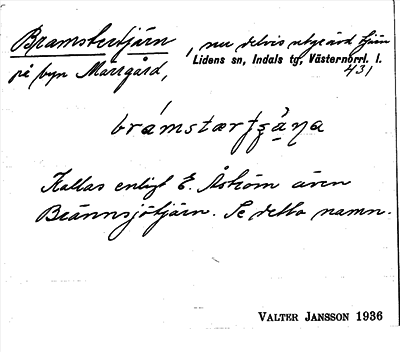 Bramstertjärn, nu delvis utgrävd tjärn
på byn Marrgård, Lidens sn, Indals tg, Västernorrl. l.
431
brámstærtʂȧ̀ṇa
Kallas enligt E. Åström även
Brännsjötjärn. Se detta namn.
VALTER JANSSON 1936